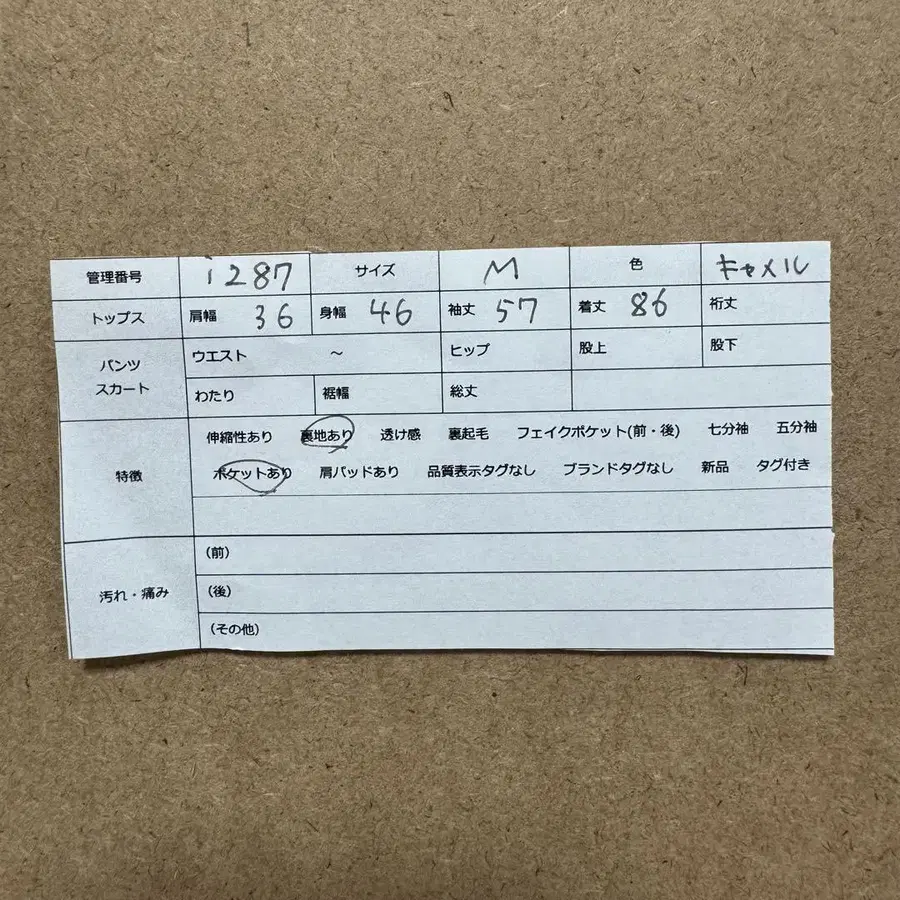 管理番号 i287 サイズ M 色 キャメル
トップス 肩幅 36 身幅 46 袖丈 57 着丈 86 裄丈
パンツ スカート ウエスト ～ ヒップ 股上 股下
わたり 裾幅 総丈
特徴 伸縮性あり 裏地あり 透け感 裏起毛 フェイクポケット(前・後) 七分袖 五分袖
ポケットあり 肩パッドあり 品質表示タグなし ブランドタグなし 新品 タグ付き
汚れ・痛み (前)
(後)
(その他)